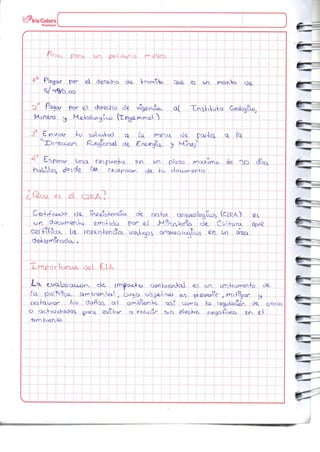 Iris Colors
Pasos para un petitorio minero
1° Pagar por el derecho de tramite que es un monto de
2° Pagar por el derecho de vigencia al Instituto Geológico,
Minero y Metalúrgico (Ingemmet)
3° Enviar tu solicitud a la mesa de partes a la
"Dirección Regional de Energía y Minas"
4° Esperar una respuesta en un plazo maximo de 30 días
habiles desde la recepción de tu documento.
¿Que es el CIRA?
Certificado de Inexistencia de restos arqueologicos (CIRA) es
un documento emitido por el Ministerio de Cultura que
certifica la inexistencia vestigios arqueologicos en un area
determinada.
Importancia del EIA
La evaluacion de impacto ambiental es un instrumento de
la política ambiental, cuyo objetivo es prevenir, mitigar y
restaurar los daños al ambiente así como la regulación de obras
o actividades para evitar o reducir sus efectos negativos en el
ambiente